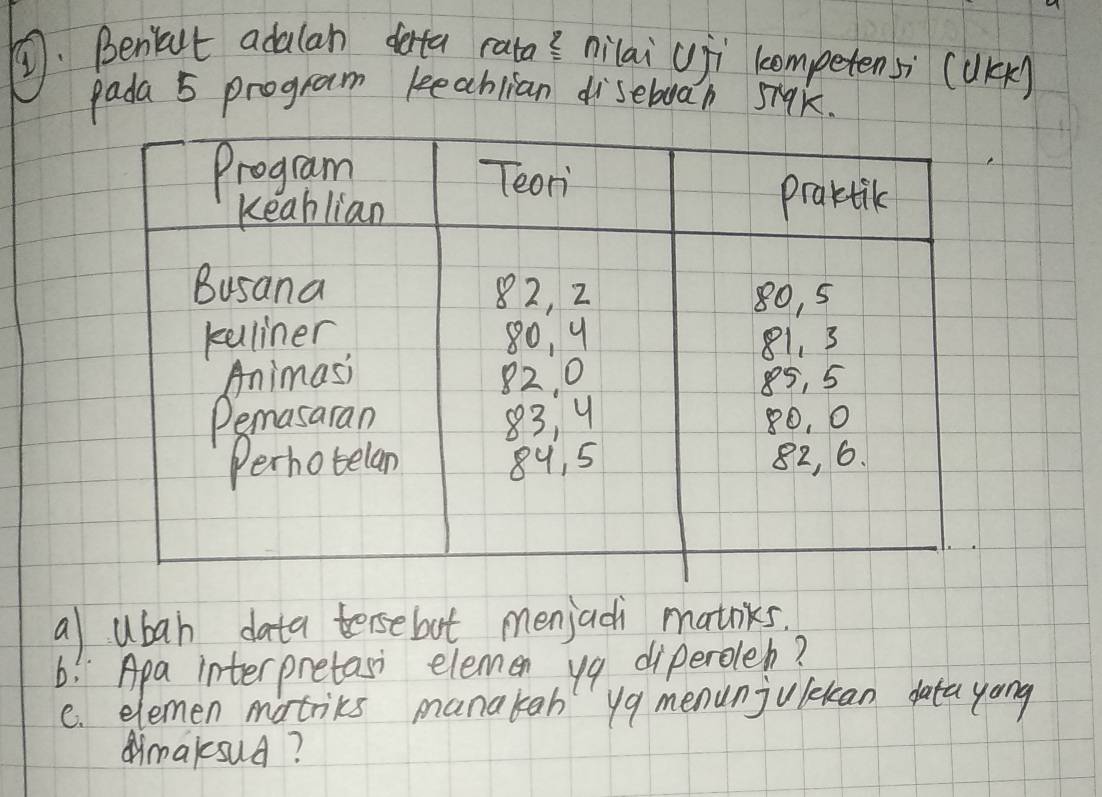 1. Berikut adalah data rata2 nilai Uji kompetensi (UKK)
pada 5 program keahlian disebuah SMK.
Program Keahlian | Teori | Praktik
Busana | 82,2 | 80,5
kuliner | 80,4 | 81,3
Animasi | 82,0 | 85,5
Pemasaran | 83,4 | 80,0
Perhotelan | 84,5 | 82,6.
a) Ubah data tersebut menjadi matriks.
b. Apa interpretasi elemen yg diperoleh?
c. elemen matriks manakah yg menunjukkan data yang
dimaksud?